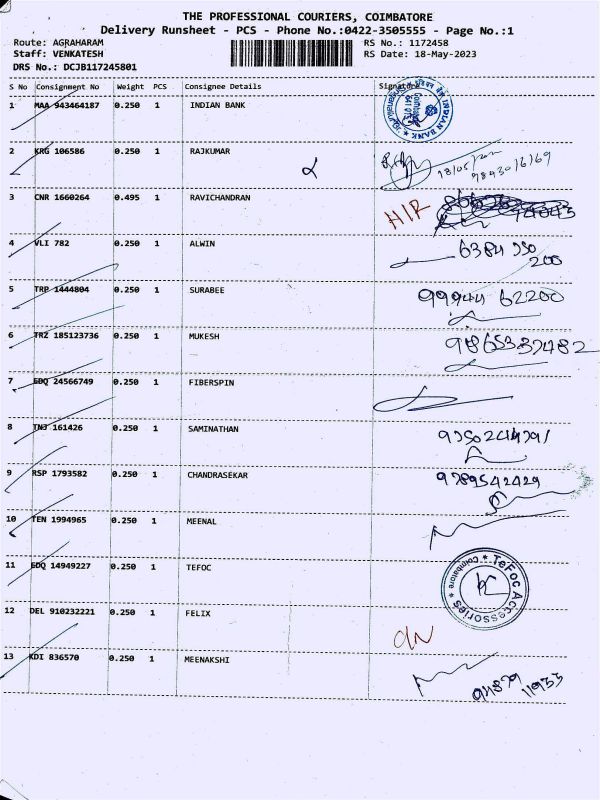 THE PROFESSIONAL COURIERS, COIMBATORE
Delivery Runsheet - PCS - Phone No.:0422-3505555 - Page No.:1
Route: AGRAHARAM RS No.: 1172458
Staff: VENKATESH RS Date: 18-May-2023
DRS No.: DCJB117245801
S No Consignment No Weight PCS Consignee Details Signature
1 MAA 943464187 0.250 1 INDIAN BANK
INDIAN BANK
2 KRG 106586 0.250 1 RAJKUMAR
3 CNR 1660264 0.495 1 RAVICHANDRAN H/R
4 VLI 782 0.250 1 ALWIN
200
5 TRP 1444804 0.250 1 SURABEE 99944 62200
6 TRZ 185123736 0.250 1 MUKESH
7 EDQ 24566749 0.250 1 FIBERSPIN
8 TNJ 161426 0.250 1 SAMINATHAN
9 RSP 1793582 0.250 1 CHANDRASEKAR 9789542429
10 TEN 1994965 0.250 1 MEENAL
11 EDQ 14949227 0.250 1 TEFOC
TeFoc Accessories * Coimbatore *
12 DEL 910232221 0.250 1 FELIX
13 KDI 836570 0.250 1 MEENAKSHI
94879
11933